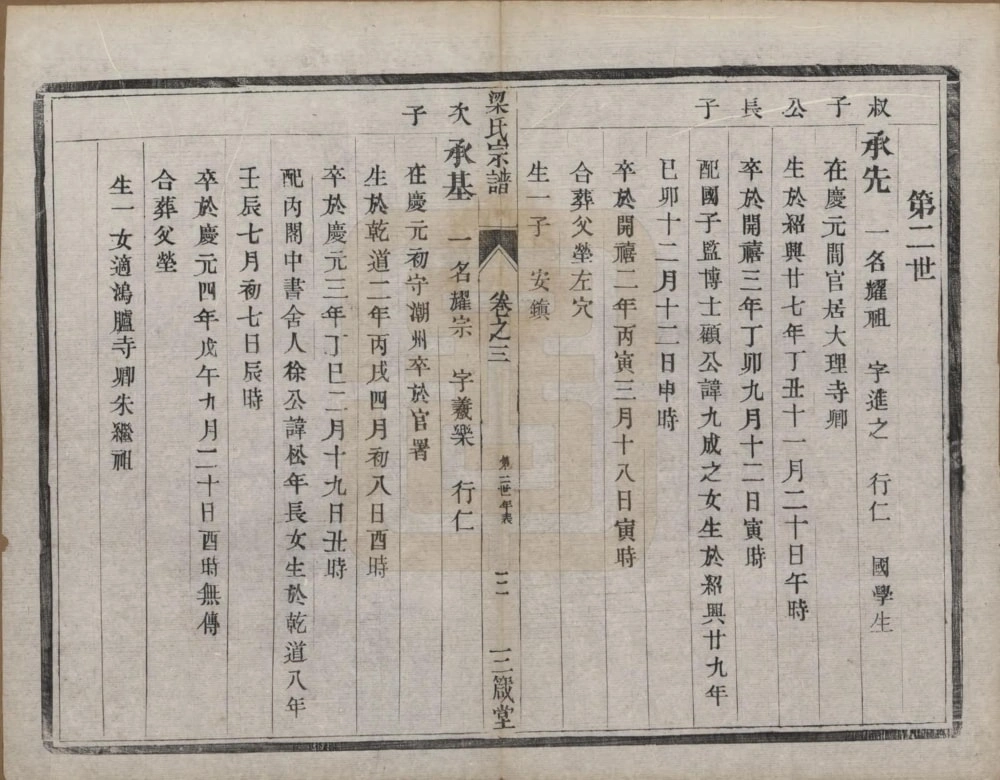 第二世
叔子公長子
承先 一名耀祖 字進之 行仁 國學生
在慶元間官居大理寺卿
生於紹興廿七年丁丑十一月二十日午時
卒於開禧三年丁卯九月十二日寅時
配國子監博士顧公諱九成之女生於紹興廿九年
已卯十二月十二日申時
卒於開禧二年丙寅三月十八日寅時
合葬父塋左穴
生一子 安鎮
梁氏宗譜 卷之三 第二世年表 二 三箴堂
次子
承基 一名耀宗 字羲樂 行仁
在慶元初守潮州卒於官署
生於乾道二年丙戌四月初八日酉時
卒於慶元三年丁巳二月十九日丑時
配內閣中書舍人徐公諱松年長女生於乾道八年
壬辰七月初七日辰時
卒於慶元四年戊午九月二十日酉時無傳
合葬父塋
生一女適鴻臚寺卿朱繼祖